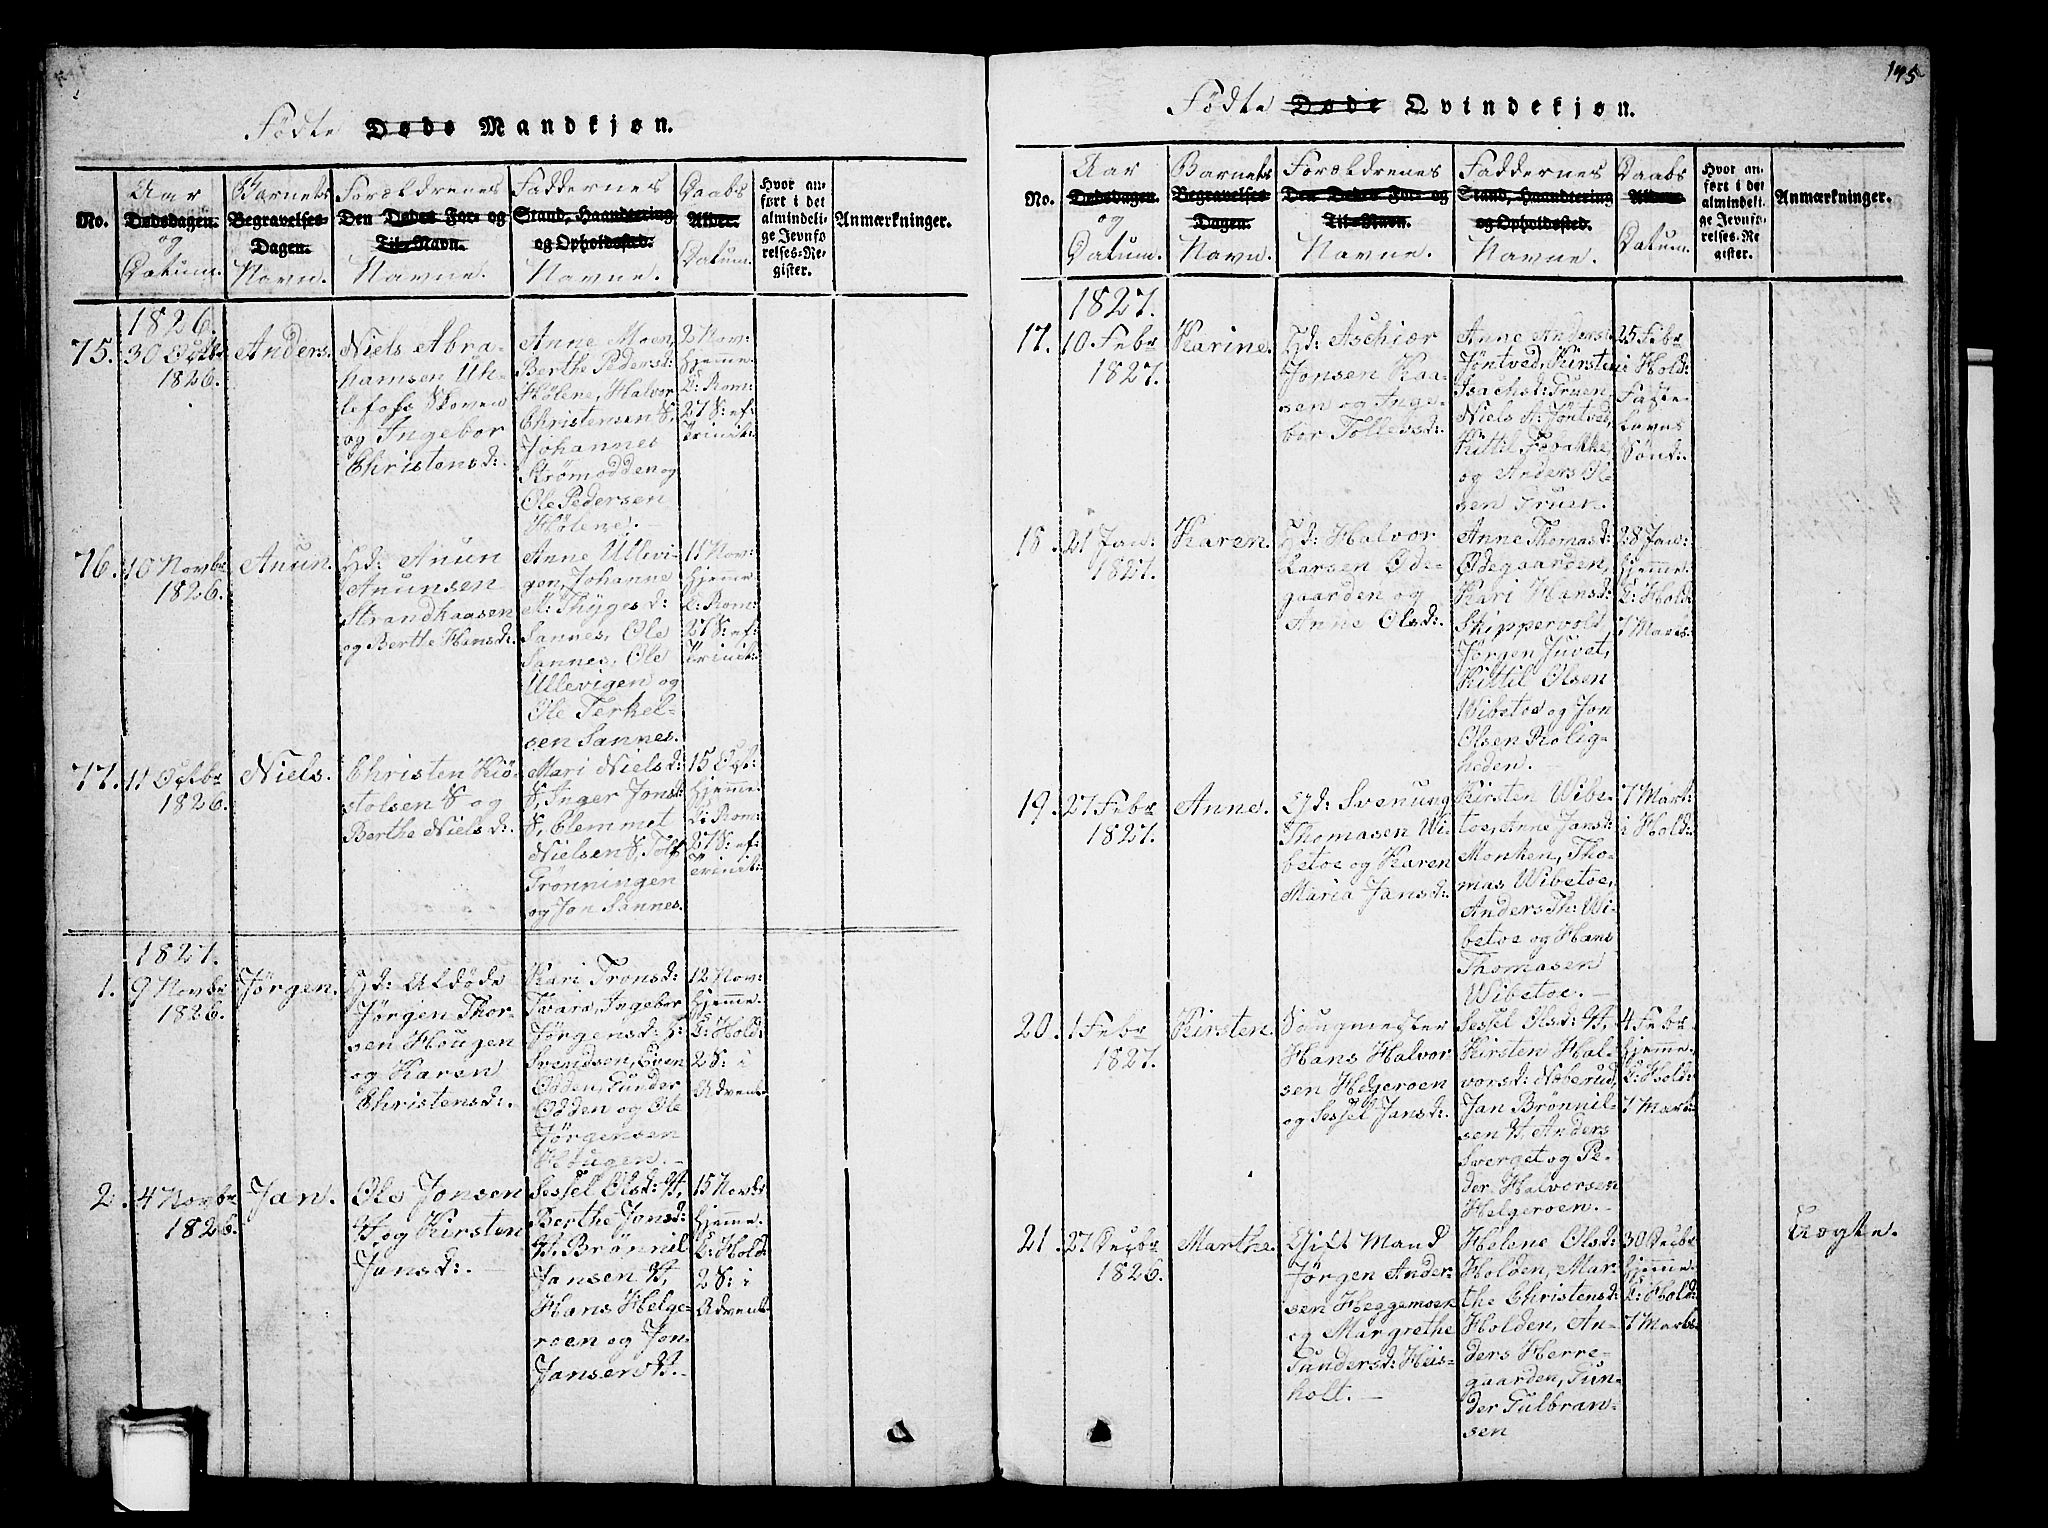 Fødte Døde Mandkjøn.
No.
Aar
Dødsdagen.
og
Datum.
Barnets
Begravelses-
Dagen.
Navn.
Forældrenes
Den Dødes For- og
Til-Navn.
Navne.
Faddernes
Stand, Haandtering
og Opholdssted.
Navne.
Daabs
Alder.
Datum.
Hvor an-
ført i det
almindeli-
ge Jevnfø
relses-Re-
gister.
Anmærkninger.
1826.
75.
30 Octbr
1826.
Anders.
Niels Abra-
hamsen Uh-
lefoss Skoven
og Ingebor
Christensd:
Anne Moen,
Berthe Pedersd:
Hølene, Halvor
Christensen S,
Johannes
Strømodden og
Ole Pedersen
Hølene.
2 Nov:
hjemme.
C: Rom:
27 S: ef:
Trinit:
76.
10 Novbr
1826.
Anun.
Hd: Anun
Anunsen
Strandkaasen
og Berthe Hansd:
Anne Ullevi-
gen, Johanne
M: Thygesd:
Sannes, Ole
Sannes, Ole
Ullevigen og
Ole Terkel-
sen Sannes.
11 Nov:
hjemme.
C: Rom:
27 S: ef:
Trinit:
77.
11 Octbr
1826.
Niels.
Christen Kiø-
stolsen S og
Berthe Nielsd:
Mari Nielsd:
S, Inger Jonsd:
S, Clemmet
Nielsen S, Tolf
Grønningen
og Jon Sannes.
15 Oct:
hjemme.
C: Rom:
27 S: ef:
Trinit:
1827.
1.
9 Novbr
1826.
Jørgen.
Hd: Afdøde
Jørgen Thor-
sen Hougen
og Karen
Christensd:
Kari Tronsd:
Tvara, Ingebor
Jørgensd: H:
Svendsen, Even
Odden, Gunder
Odden og Ole
Jørgensen
Hougen.
12 Nov:
hjemme.
C: Hold:
2 S: i
Advent
2.
4 Novbr
1826.
Jan.
Ole Jonsen
H, og Kirsten
Jansd:
Sessel Olsd: H,
Berthe Jonsd:
H. Brønnil
Jansen H,
Hans Helge-
roen og Jon
Jansen H.
15 Novbr
hjemme.
C: Hold:
2 S: i
Advent
145
Fødte Døde Qvindekjøn.
No.
Aar
Dødsdagen.
og
Datum.
Barnets
Begravelses
Dagen.
Navn.
Forældrenes
Den Dødes For- og
Til-Navn.
Navne.
Faddernes
Stand, Haandtering
og Opholdssted.
Navne.
Daabs
Alder.
Datum.
Hvor an-
ført i det
almindeli
ge Jevnfø-
relses-Re
gister.
Anmærkninger.
1827.
17.
10 Febr
1827.
Karine.
Hd: Aschier
Jonsen Kaa-
sen og Inge-
bor Tollefsd:
Anne Andersd:
Jøntved, Kirsten
Isachsd: Gruen,
Niels A: Jøntved,
Kittil
og Anders Ol-
sen Gruen.
25 Febr
i Hold:
Faste-
lavns
Sønd:
18.
21 Jan:
1827.
Karen.
Hd: Halvor
Larsen Øde-
gaarden og
Anne Olsd:
Anne Thomasd:
Ødegaarden,
Kari Hansd:
Skippervold,
Jørgen Juvet,
Kittil Olsen
Wibetoe og Jon
Olsen Rolig-
heden.
28 Jan:
hjemme.
C: Hold:
7 Marts
19.
27 Febr
1827.
Anne.
Gd: Svenung
Thomasen Wi-
betoe og Karen
Maria Jansd:
Kirsten Wibe-
toe, Anne Jansd:
Monken, Tho-
mas Wibetoe,
Anders Th: Wi-
betoe og Hans
Thomasen
Wibetoe.
7 Mart:
i Hold:
20.
1 Febr
1827.
Kirsten.
Hans Halvor
sen Helgeroen
og Sessel Jansd:
Sessel Olsd: H,
Kirsten Hal-
vorsd: Næberud,
Jan Brønnil-
sen H, Anders
Sverget og Pe-
der Halvorsen
Helgeroen.
4 Febr
hjemme.
C: Hold:
7 Mart:
21.
27 Decbr
1826.
Marthe.
Gift Mand
Jørgen Ander-
sen Heggemoen
og Margrethe
Gundersd: Heis-
holt.
Helene Olsd:
Holden, Mar-
the Christensd:
Holden, An-
ders Herre-
gaarden, Gun-
der Gulbran-
sen
30 Decbr
hjemme
C: Hold:
7 Marts
Uægte.